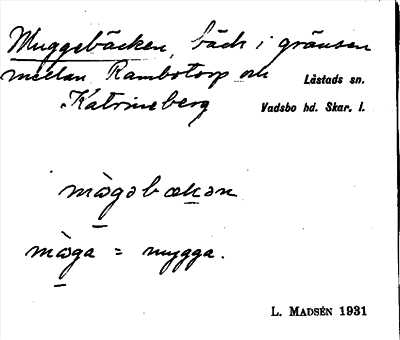 Muggebäcken, bäck i gränsen
mellan Rambotorp och
Låstads sn.
Katrineberg
Vadsbo hd. Skar. l.
mɔ̀gəbækən
mɔ̀ga = mygga.
L. MADSÉN 1931